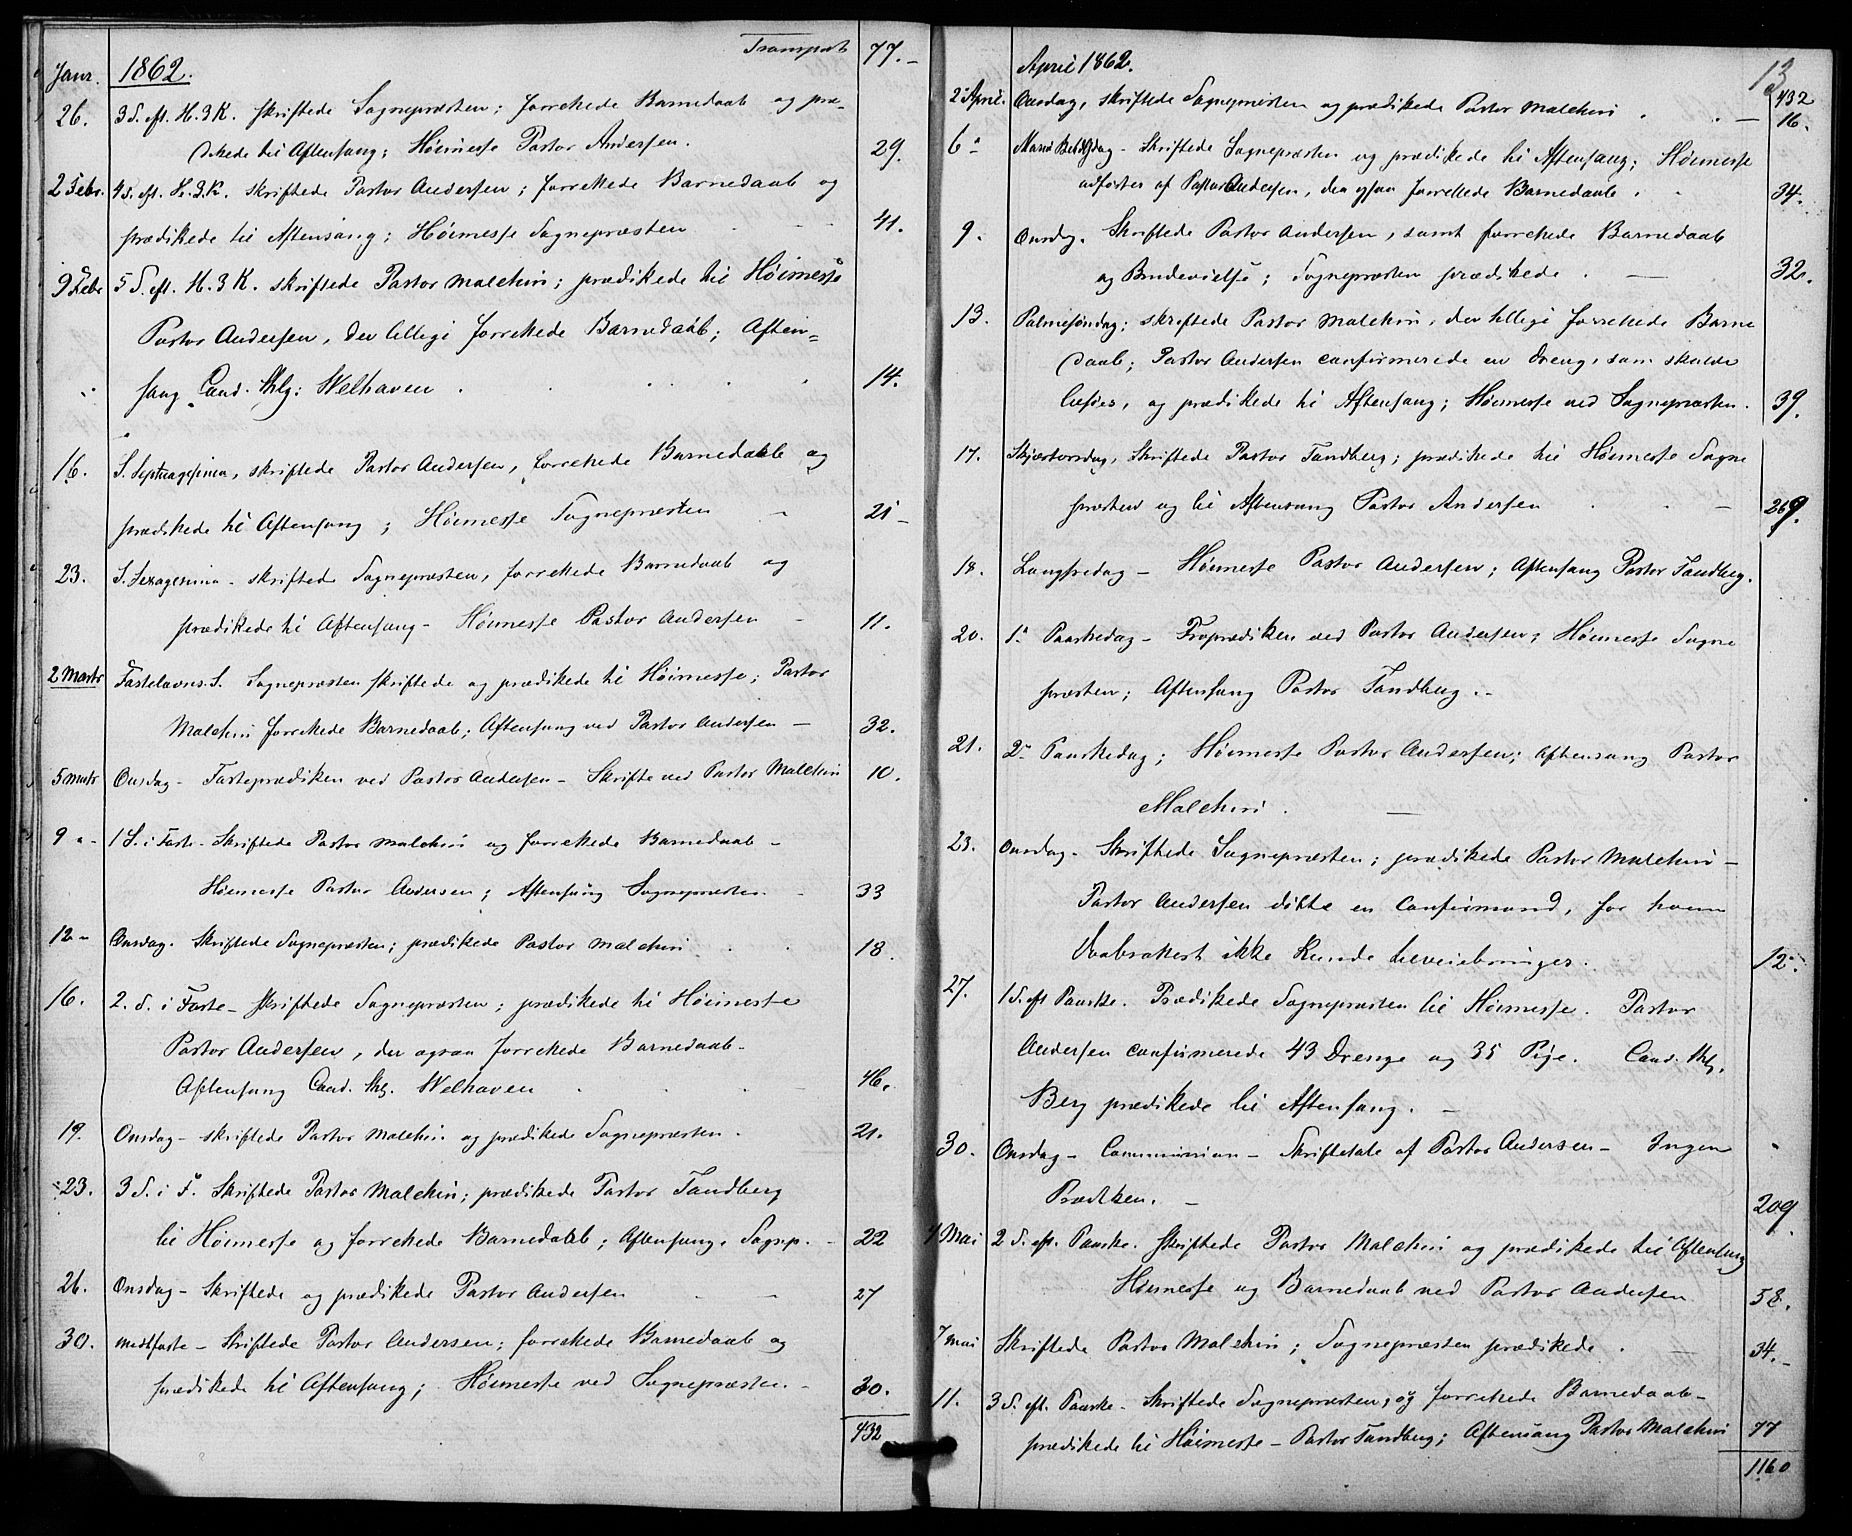 Transport 77.-
Janr. 1862.
26. 3 S. eft. H. 3 K. skriftede Sognepræsten; forrettede Barnedaab og præ-
dikede til Aftensang; Høimesse Pastor Andersen. 29.
2 Febr. 4 S. eft. H. 3. K. skriftede Pastor Andersen; forrettede Barnedaab og
prædikede til Aftensang; Høimesse Sognepræsten 41.
9 Febr 5 S. eft. H. 3 K. skriftede Pastor Malchin; prædikede til Høimesse
Pastor Andersen, der tillige forrettede Barnedaab; Aften-
sang Cand. Thlg: Welhaven . 14.
16. S. Septuagesima, skriftede Pastor Andersen, forrettede Barnedaab og
prædikede til Aftensang; Høimesse Sognepræsten - 21-
23. S. Sexagesima - skriftede Sognepræsten, forrettede Barnedaab og
prædikede til Aftensang - Høimesse Pastor Andersen - 11.
2 Marts Fastelavns S. Sognepræsten skriftede og prædikede til Høimesse; Pastor
Malchin forrettede Barnedaab; Aftensang ved Pastor Andersen - 32.
5 Marts Onsdag - Fasteprædiken ved Pastor Andersen - Skrifte ved Pastor Malchin 10.
9 " - 1 S. i Faste - Skriftede Pastor Malchin og forrettede Barnedaab -
Høimesse Pastor Andersen; Aftensang Sognepræsten - 33
12 - Onsdag. Skriftede Sognepræsten; prædikede Pastor Malchin . . 18.
16. 2. S. i Faste - skriftede Sognepræsten; prædikede til Høimesse
Pastor Andersen, der ogsaa forrettede Barnedaab -
Aftensang Cand. Thlg. Welhaven . . - 46.
19. Onsdag - skriftede Pastor Malchin og prædikede Sognepræsten - 21.
23. 3 S. i F. Skriftede Pastor Malchin; prædikede Pastor Tandberg
til Høimesse og forrettede Barnedaab; Aftensang, Sognep. - 22
26. Onsdag - Skriftede og prædikede Pastor Andersen - - 27
30. Midfaste - Skriftede Pastor Andersen; forrettede Barnedaab og
prædikede til Aftensang; Høimesse ved Sognepræsten - 30.
432
13
April 1862.
432
2 April. Onsdag, skriftede Sognepræsten og prædikede Pastor Malchin . . - 16.
6 " Mariæ Bebdgdag - Skriftede Sognepræsten og prædikede til Aftensang; Høimesse
udførtes af Pastor Andersen, der ogsaa forrettede Barnedaab . . 34.
9. Onsdg. Skriftede Pastor Andersen, samt forrettede Barnedaab
og Brudevielse; Sognepræsten prædikede . - 32.
13. Palmesøndag; skriftede Pastor Malchin, der tillige forrettede Barne
daab; Pastor Andersen confirmerede en Dreng, som skulde
tilsøes, og prædikede til Aftensang; Høimesse ved Sognepræsten. 39.
17. Skjærtorsdag, Skriftede Pastor Tandberg; prædikede til Høimesse Sogne
præsten og til Aftensang Pastor Andersen . . - 269.
18. Langfredag - Høimesse Pastor Andersen; Aftensang Pastor Tandberg.
20. 1ᵉ Paaskedag - Froprædiken ved Pastor Andersen; Høimesse Sogne
præsten; Aftensang Pastor Tandberg. -
21. 2ᵉ Paaskedag; Høimesse Pastor Andersen; Aftensang Pastor
Malchin . -
23. Onsdag - Skriftede Sognepræsten; prædikede Pastor Malchin -
Pastor Andersen døbte en Confirmand, for hvem
Daabsattest ikke kunde tilveiebringes. 12.
27. 1 S. eft Paaske. Prædikede Sognepræsten til Høimesse. Pastor
Andersen confirmerede 43 Drenge og 35 Pige. Cand. Thlg.
Berg prædikede til Aftensang. -
30. Onsdag - Communion - Skriftetale af Pastor Andersen - Ingen
Prædiken. - 209.
4 Mai 2 S. eft. Paaske. Skriftede Pastor Malchin og prædikede til Aftensang
Høimesse og Barnedaab ved Pastor Andersen 58.
7 Mai Skriftede Pastor Malchin; Sognepræsten prædikede . - 34.-
11. 3 S. eft. Paaske - Skriftede Sognepræsten, og forrettede Barnedaab -
prædikede til Høimesse - Pastor Tandberg; Aftensang Pastor Malchin 77
1160